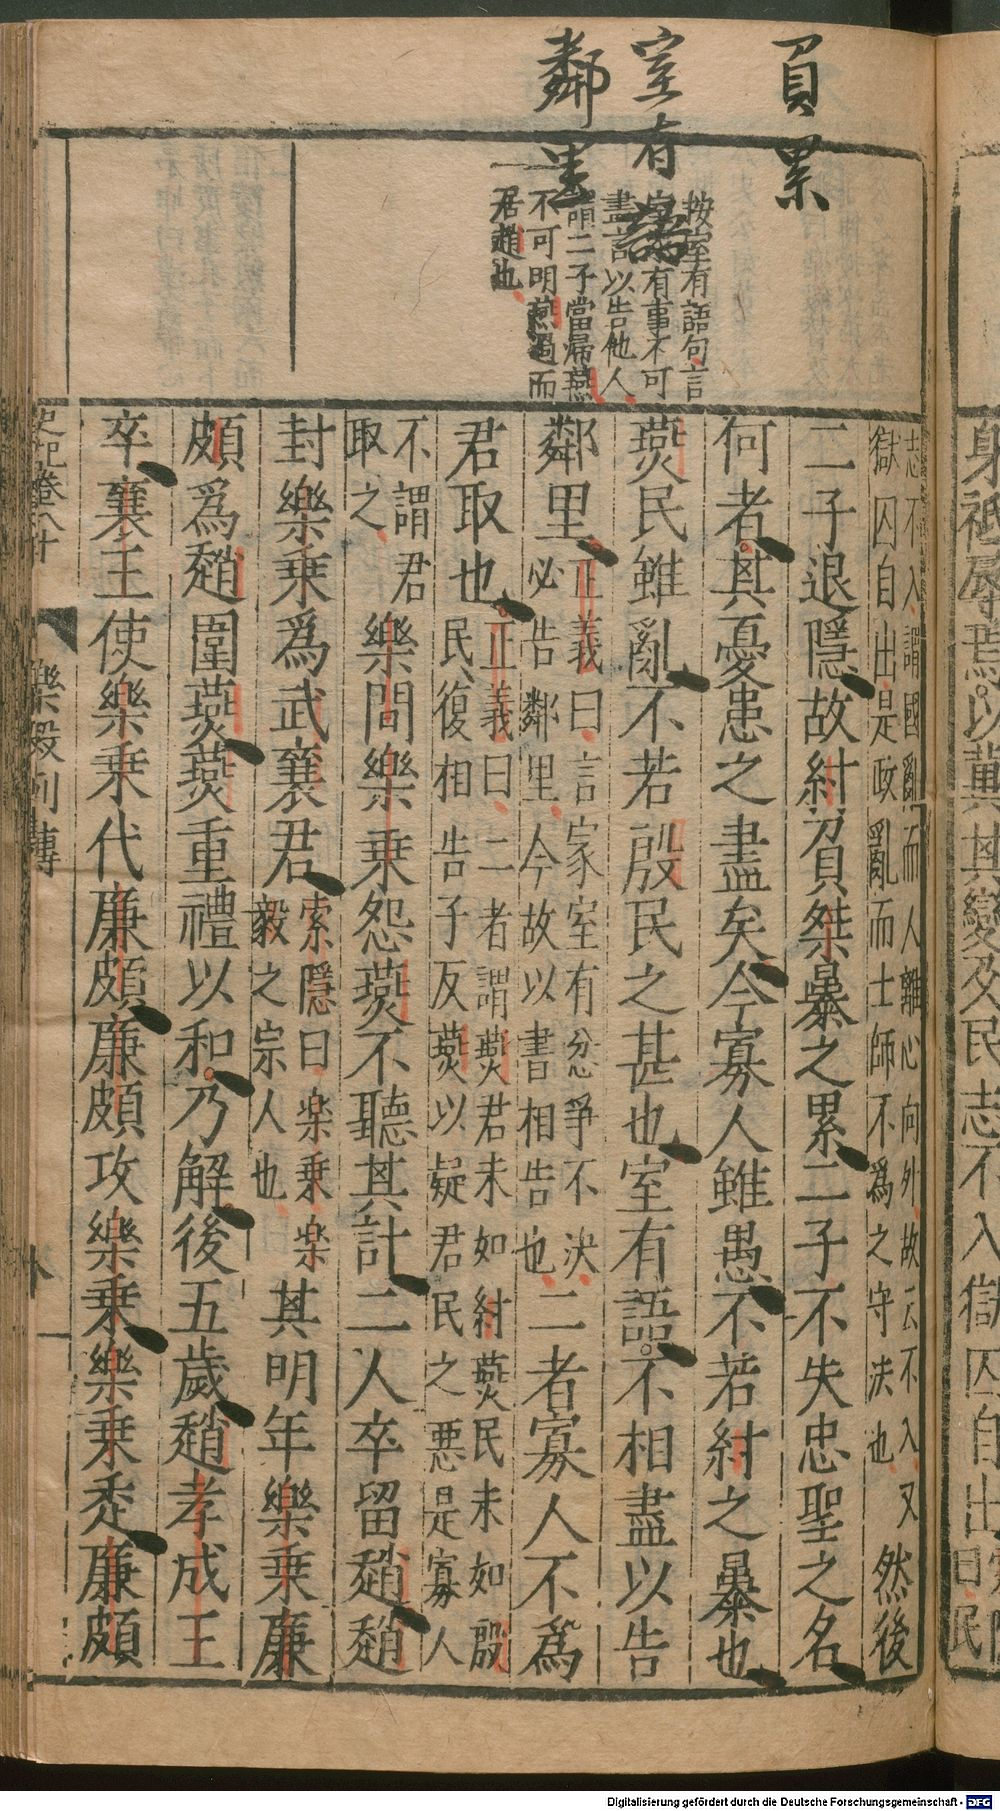 負累
室有語
鄰里
按室有語句言
家室有事不可
盡言以告他人
謂二子當歸燕
不可明燕過而
君趙也
志不入謂國亂而人離心向外故云不入又
獄囚自出是政亂而士師不爲之守法也
然後
二子退隱故紂負桀暴之累二子不失忠聖之名
何者其憂患之盡矣今寡人雖愚不若紂之暴也
燕民雖亂不若殷民之甚也室有語不相盡以告
鄰里
正義曰言家室有忿爭不決
必告鄰里今故以書相告也
二者寡人不爲
君取也
正義曰二者謂燕君未如紂燕民未如殷
民復相告子反燕以疑君民之悪是寡人
不謂君
取之
樂間樂乗怨燕不聽其計二人卒留趙趙
封樂乗爲武襄君
索隱曰楽乗楽
毅之宗人也
其明年樂乗廉
頗爲趙圍燕燕重禮以和乃解後五歲趙孝成王
卒襄王使樂乗代廉頗廉頗攻樂乗樂乗走廉頗
史記卷八十
樂毅列傳
身祗辱焉以冀其變及民志不入獄囚自出
曰民
Digitalisierung gefördert durch die Deutsche Forschungsgemeinschaft - DFG